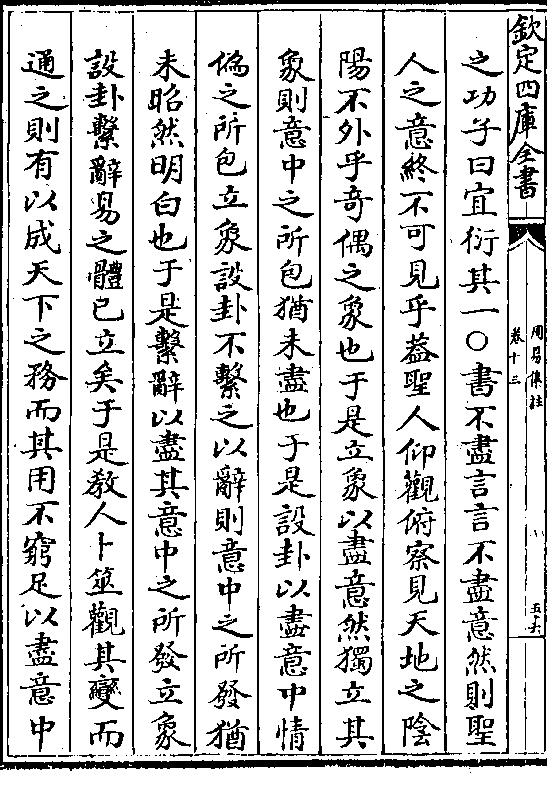 欽定四庫全書
周易集註
卷十三
五六
之功子曰宜衍其一○書不盡言言不盡意然則聖
人之意終不可見乎葢聖人仰觀俯察見天地之陰
陽不外乎奇偶之象也于是立象以盡意然獨立其
象則意中之所包猶未盡也于是設卦以盡意中情
偽之所包立象設卦不繫之以辭則意中之所發猶
未昭然明白也于是繫辭以盡其意中之所發立象
設卦繫辭易之體已立矣于是教人卜筮觀其變而
通之則有以成天下之務而其用不窮足以盡意中